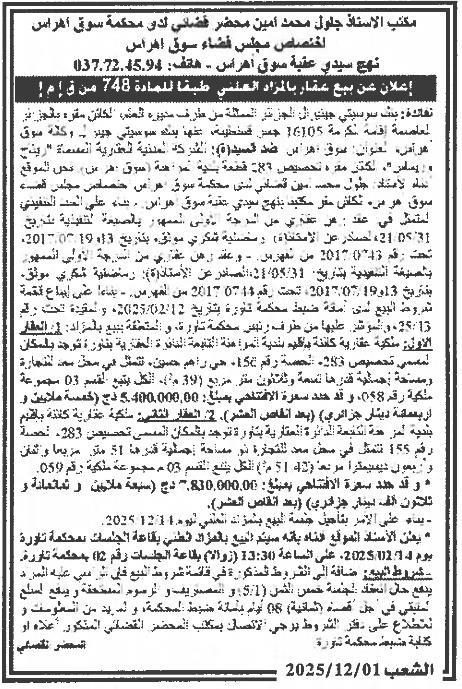 مكتب الاستاذ جلول محمد أمين محضر قضائي لدى محكمة سوق أهراس
اختصاص مجلس قضاء سوق أهراس
نهج سيدي عقبة سوق أهراس - هاتف: 037.72.45.94
إعلان عن بيع عقار بالمزاد العلني طبقا للمادة 748 من ق إ م إ
لفائدة: بنك سوسيتي جينيرال الجزائر الممثلة من طرف مديره العام الكائن مقره بالجزائر
العاصمة إقامة الكرمة 16105 جسر قسنطينة، عنها بنك سوسيتي جينيرال وكالة سوق
أهراس، العنوان: سوق أهراس ضد السيد(ة): الشركة المدنية العقارية المسماة
الكائن مقره تخصيص 283 قطعة بلدية المراهنة (سوق أهراس)، نحن الموقع
أدناه الأستاذ جلول محمد أمين قضائي لدى محكمة سوق أهراس اختصاص مجلس قضاء
سوق أهراس، الكائن مقر مكتبنا بنهج سيدي عقبة سوق أهراس. - بناء على السند التنفيذي
المتمثل في عقد رهن عقاري من الدرجة الأولى الممهور بالصيغة التنفيذية بتاريخ:
21/05/31، الصادر عن الأستاذ(ة): رمضانية شكري موثق، بتاريخ 13و2017.07.19،
تحت رقم 2017.0743 من الفهرس. - وعقد رهن عقاري من الدرجة الأولى الممهور
بالصيغة التنفيذية بتاريخ: 21/05/31، الصادر عن الأستاذ(ة): رمضانية شكري موثق،
بتاريخ 13و2017/07/19، تحت رقم 2017.0744 من الفهرس. - بناء على إيداع قائمة
شروط البيع لدى أمانة ضبط محكمة تاورة بتاريخ 2025/02/12، والمقيدة تحت رقم
25/13، والمؤشر عليها من طرف رئيس محكمة تاورة، والمتعلقة ببيع بالمزاد: 1/ العقار
الأول: ملكية عقارية كائنة بإقليم بلدية المراهنة التابعة للدائرة العقارية بتاورة توجد بالمكان
المسمى تخصيص 283- الحصة رقم 156، حي راهم حسين، تتمثل في محل معد للتجارة
ومساحة إجمالية قدرها تسعة وثلاثون متر مربع (39 م²)، الكل يتبع القسم 03 مجموعة
ملكية رقم 058، و قد حدد سعره الافتتاحي بمبلغ: 5.400.000,00 دج (خمسة ملايين و
أربعمائة دينار جزائري) (بعد انقاص العشر). 2/ العقار الثاني: ملكية عقارية كائنة بإقليم
بلدية المراهنة التابعة للدائرة العقارية بتاورة توجد بالمكان المسمى تخصيص 283، الحصة
رقم 155 تتمثل في محل معد للتجارة ذو مساحة إجمالية قدرها 51 متر مربعا وإثنان
وأربعون ديسيمترا مربعا (51.42 م²) الكل يتبع القسم 03 مجموعة ملكية رقم 059.
* و قد حدد سعره الافتتاحي بمبلغ: 7.830.000,00 دج (سبعة ملايين و ثمانمائة و
ثلاثون ألف دينار جزائري) (بعد انقاص العشر).
- بناء على الأمر بتأجيل جلسة البيع بالمزاد العلني ليوم 2025/12/14.
* يعلن الأستاذ الموقع أدناه بأنه سيتم البيع بالمزاد العلني بقاعة الجلسات بمحكمة تاورة
يوم 2025/01/14، على الساعة 13:30 (زوالا) بقاعة الجلسات رقم 02 بمحكمة تاورة.
- شروط البيع: إضافة إلى الشروط المذكورة في قائمة شروط البيع فإن الراسي عليه المزاد
يدفع حال انعقاد الجلسة خمس الثمن (5/1) و المصاريف و الرسوم المستحقة و يدفع المبلغ
المتبقي في أجل أقصاه (ثمانية) 08 أيام بأمانة ضبط المحكمة، و لمزيد من المعلومات و
للاطلاع على دفتر الشروط يرجى الاتصال بمكتب المحضر القضائي المذكور أعلاه أو
كتابة ضبط محكمة تاورة
المحضر القضائي
الشعب 2025/12/01